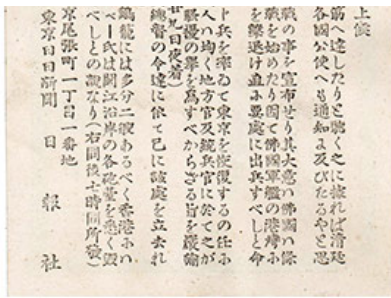 上候
筋へ達したりと聴く之に據れば清廷
各國公使へも通知に及びたるやと思
戰の事を宣布せり其大意ハ佛國ハ條
戰を始めたり因て佛國軍艦の港灣に
を擊退け直に要處に出兵すべしと命
ト兵を率ゐて東京を恢復するの任に
人ハ均く地方官及統兵官に於て之が
騷擾の擧を爲すべからざる旨を嚴諭
廿九日夜着)
總督の令達に依て已に該處を立去れ
鷄籠にハ多分二艘あるべく香港にハ
ベー氏ハ閩江沿岸の各砲臺を悉く毀
べしとの説なり(右同後七時同所發)
京尾張町一丁目一番地
東京日日新聞 日報社